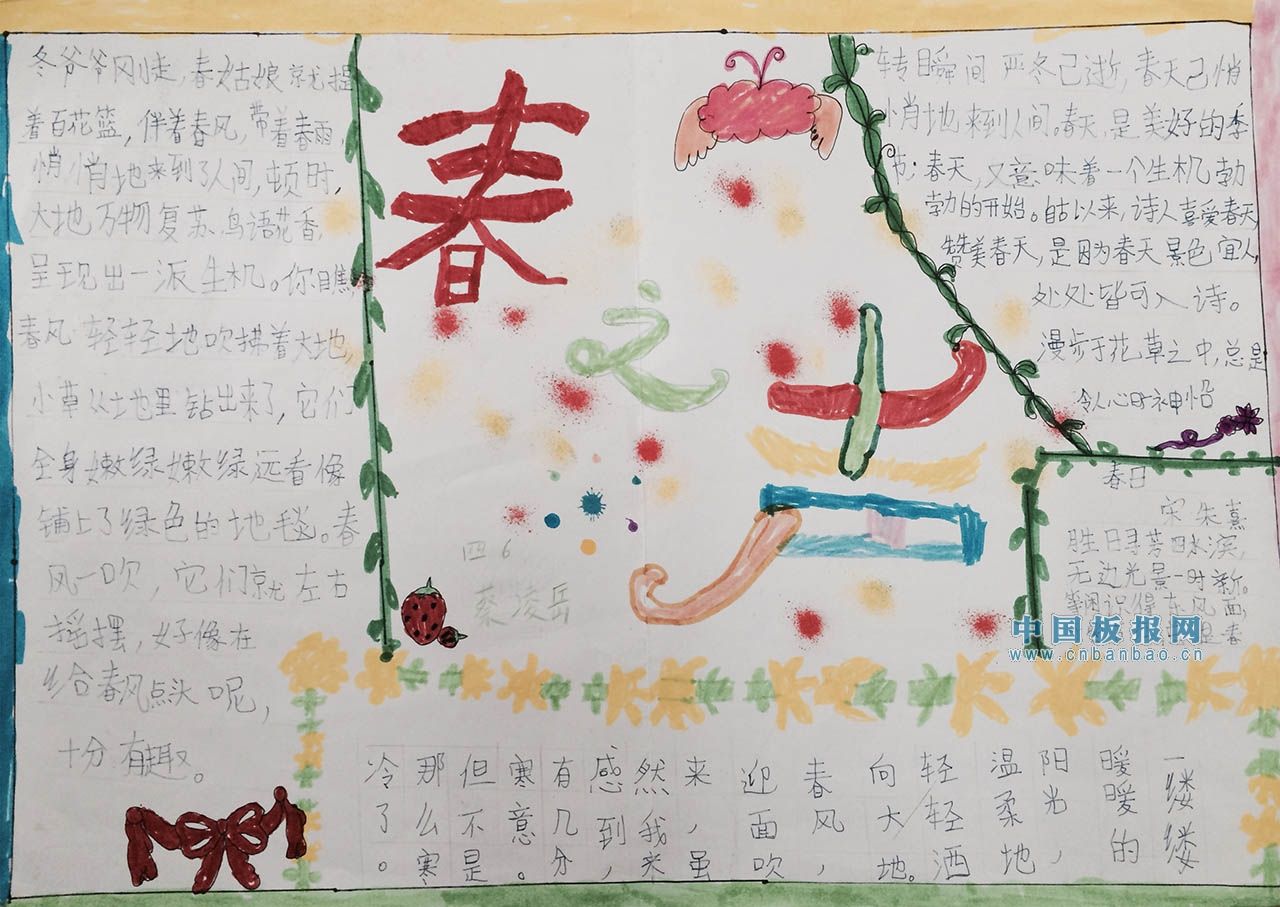 冬爷爷刚走,春姑娘就提
着百花篮,伴着春风,带着春雨,
悄悄地来到了人间,顿时,
大地万物复苏、鸟语花香,
呈现出一派生机。你瞧
春风轻轻地吹拂着大地,
小草从土地里钻出来了,它们
全身嫩绿嫩绿远看像
铺上了绿色的地毯。春
风一吹,它们就左右
摇摆,好像在
给春风点头呢,
十分有趣。
春
之
声
四6
蔡凌岳
转瞬间严冬已逝,春天已悄
悄地来到人间。春天,是美好的季
节;春天,又意味着一个生机勃
勃的开始。自古以来,诗人喜爱春天,
赞美春天,是因为春天景色宜人,
处处皆可入诗。
漫步于花草之中,总是
令人心旷神怡
春日
宋朱熹
胜日寻芳四水滨,
无边光景一时新。
识得东风面,
是春
中国板报网
www.cnbanbao.cn
一缕缕
暖暖的
阳光,
温柔地
轻轻洒
向大地。
春风,
迎面吹
来,虽
然我来
感到,
有几分
寒意。
但不是
那么寒
冷了。